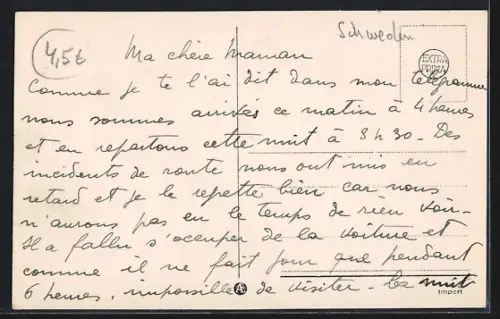 Schweden
4,5€
EXTRA
PRIMA
Ma chère Maman
Comme je te l'ai dit dans mon télégramme
nous sommes arrivés ce matin à 4 heures
et en repartons cette nuit à 3h30. Des
incidents de route nous ont mis en
retard et je le regrette bien car nous
n'aurons pas eu le temps de rien voir.
Il a fallu s'occuper de la voiture et
comme il ne fait jour que pendant
6 heures, impossible de visiter. La nuit
Import